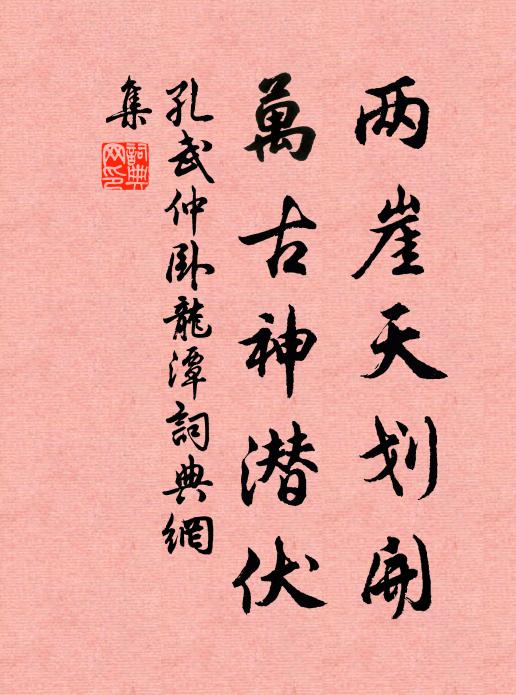 两崖天划開
萬古神潜伏
孔武仲卧龍潭詞典網
集
詞典網印